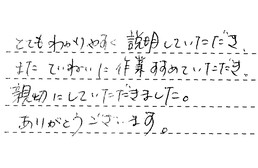 とてもわかりやすく説明していただき、
またていねいに作業すすめていただき、
親切にしていただきました。
ありがとうございます。